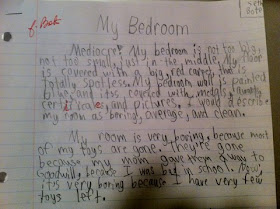 My Bedroom
Mediocre! My bedroom is not too big,
not too small, just in the middle. My floor
is covered with a big, red carpet, that is
totally spotless. My bedroom wall is painted
blue, and it's covered with medals,
certificates, and pictures. I would describe
my room as boring, average, and clean.
My room is very boring, because most
of my toys are gone. They're gone
because my mom gave them away to
Goodwill, because I was bad in school. Now,
it's very boring because I have very few
toys left.